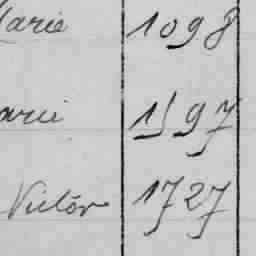 Marie 1098
arie 1597
Victor 1727